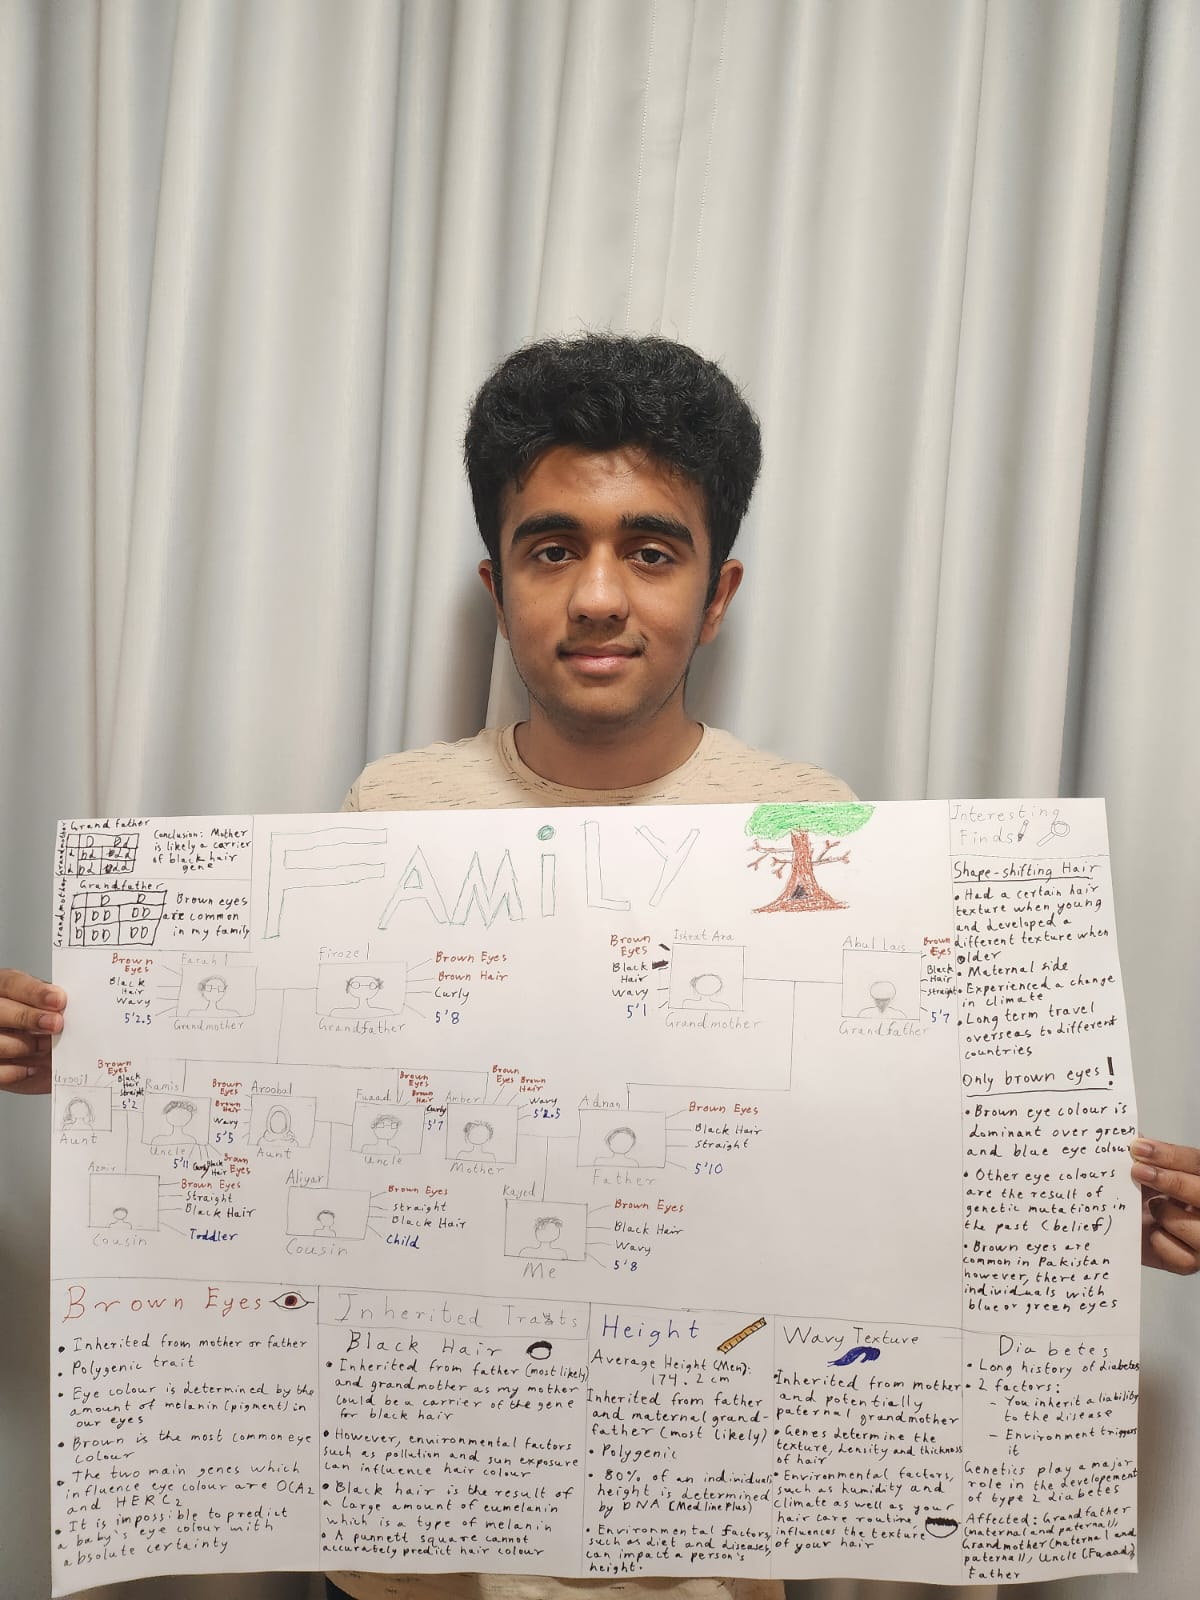 Grandfather
Grandmother
D Dd
d Dd dd
d Dd dd
Conclusion: Mother
is likely a carrier
of black hair
gene
Grandfather
Grandmother
D D
D DD DD
D DD DD
Brown eyes
are common
in my family
FAMiLY
Farah
Brown
Eyes
Black
Hair
Wavy
5'2.5
Grandmother
Firoze
Brown Eyes
Brown Hair
Curly
5'8
Grandfather
Ishrat Ara
Brown
Eyes
Black
Hair
Wavy
5'1
Grandmother
Abul Lais
Brown
Eyes
Black
Hair
straight
5'7
Grandfather
Brown
Eyes
Black
Hair
straight
5'2
Aunt
Ramis
Uncle
5'11
Curly
Black
Hair
Brown
Eyes
Aroobal
Brown
Eyes
Brown
Hair
Wavy
5'5
Aunt
Fuaad
Brown
Eyes
Brown
Hair
Curly
5'7
Uncle
Amber
Brown
Eyes
Brown
Hair
Wavy
5'2.5
Mother
Adnan
Brown Eyes
Black Hair
Straight
5'10
Father
Azmir
Brown Eyes
Straight
Black Hair
Toddler
Cousin
Aliyar
Brown Eyes
straight
Black Hair
Child
Cousin
Kayed
Brown Eyes
Black Hair
Wavy
5'8
Me
Interesting
Finds
Shape-shifting Hair
• Had a certain hair
texture when young
and developed a
different texture when
older
• Maternal side
• Experienced a change
in climate
• Long term travel
overseas to different
countries
Only brown eyes!
• Brown eye colour is
dominant over green
and blue eye colour
• Other eye colours
are the result of
genetic mutations in
the past (belief)
• Brown eyes are
common in Pakistan
however, there are
individuals with
blue or green eyes
Brown Eyes
• Inherited from mother or father
• Polygenic trait
• Eye colour is determined by the
amount of melanin (pigment) in
our eyes
• Brown is the most common eye
colour
• The two main genes which
influence eye colour are OCA2
and HERC2
• It is impossible to predict
a baby's eye colour with
absolute certainty
Inherited Traits
Black Hair
• Inherited from father (most likely)
and grandmother as my mother
could be a carrier of the gene
for black hair
• However, environmental factors
such as pollution and sun exposure
can influence hair colour
• Black hair is the result of
a large amount of eumelanin
which is a type of melanin
• A punnett square cannot
accurately predict hair colour
Height
Average Height (Men):
174.2 cm
Inherited from father
and maternal grand-
father (most likely)
• Polygenic
• 80% of an individuals
height is determined
by DNA (MedlinePlus)
• Environmental factors,
such as diet and diseases,
can impact a person's
height.
Wavy Texture
• Inherited from mother
and potentially
paternal grandmother
• Genes determine the
texture, density and thickness
of hair
• Environmental factors,
such as humidity and
climate as well as your
hair care routine,
influences the texture
of your hair
Diabetes
• Long history of diabetes
• 2 factors:
- You inherit a liability
to the disease
- Environment triggers
it
Genetics play a major
role in the developement
of type 2 diabetes
Affected: Grandfather
(maternal and paternal),
Grandmother (maternal and
paternal), Uncle (Fuaad),
Father